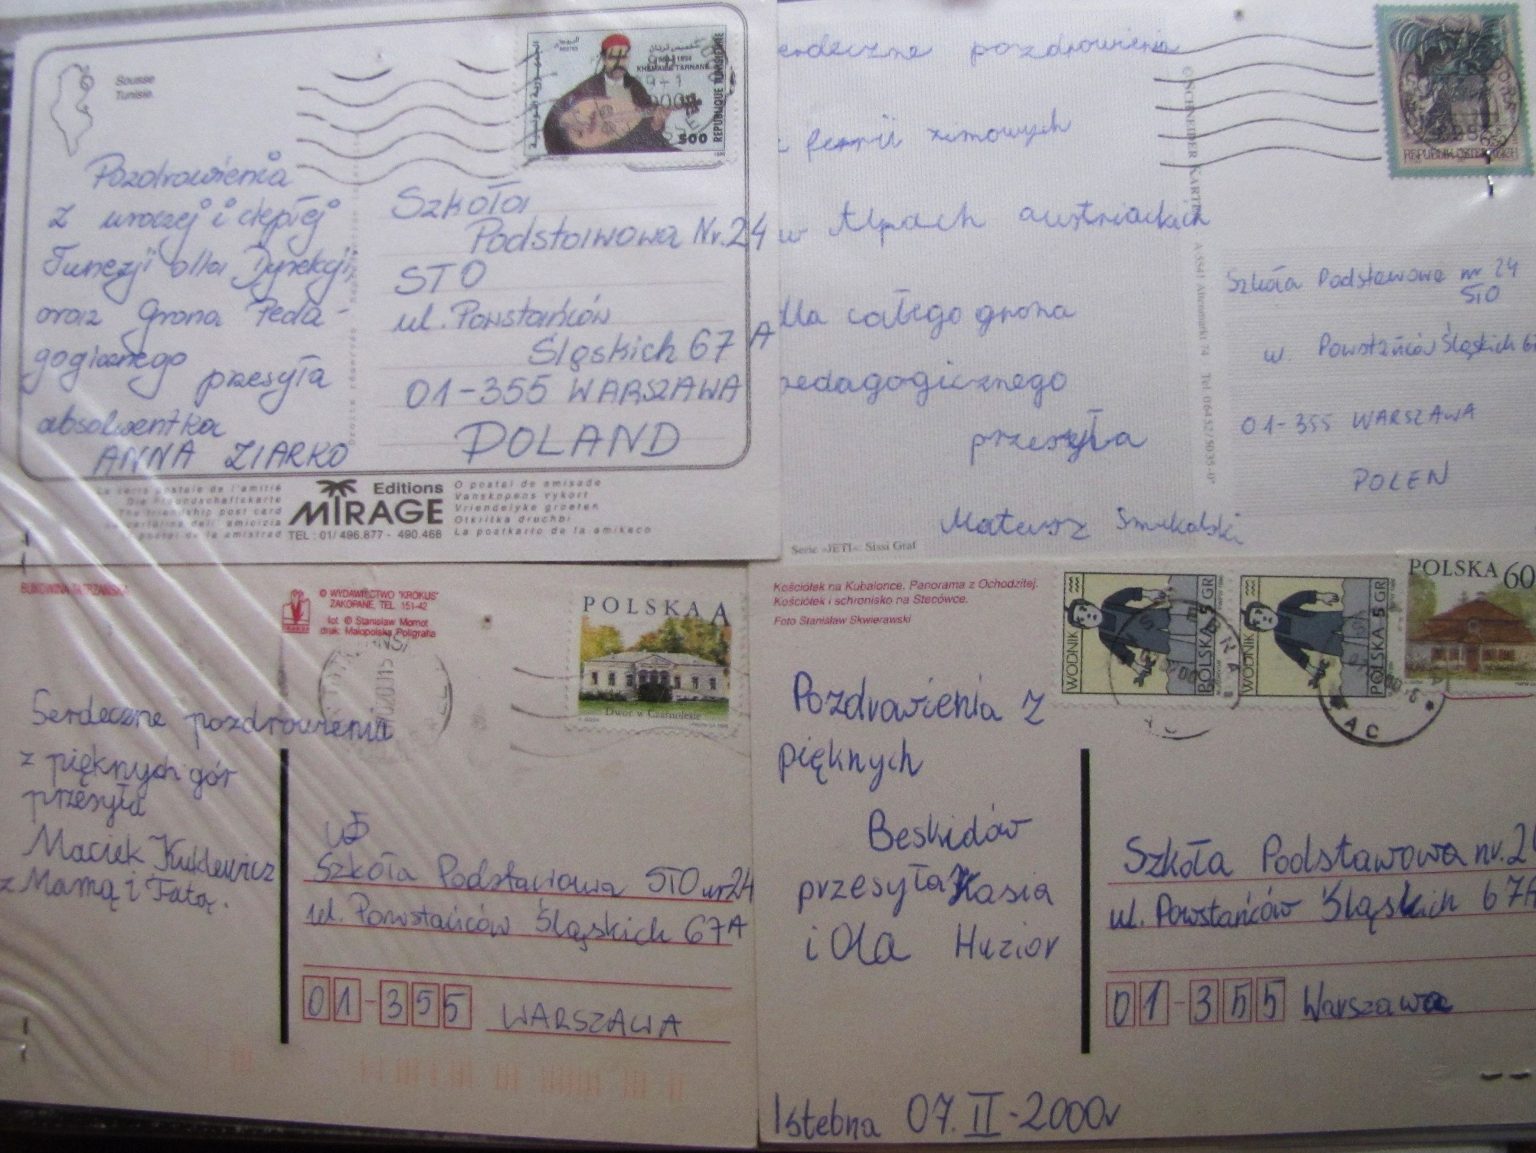 Sousse
Tunisie.
Pozdrowienia
z uroczej i ciepłej
Tunezji dla Dyrekcji,
oraz Grona Peda-
gogicznego
przesyła
absolwentka
ANNA ZIARKO
KHEMAIS TARNANE
500
REPUBLIQUE TUNISIENNE
Szkoła
Podstawowa Nr. 24
STO
ul. Powstańców
Śląskich 67 A
01-355 WARSZAWA
POLAND
La carte postale de l'amitié
Die Freundschaftskarte
The friendship post card
La cartolina dell' amicizia
Editions
MIRAGE
TEL : 01/ 496.877 - 490.466
O postal de amisade
Vanskapens vykort
Vriendelyke groeten
Otkritka druchbi
La postkarto de la amikeco
erdeczne pozdrowienia
ferii zimowych
w Alpach austriackich
dla całego grona
pedagogicznego
przesyła
Mateusz Smukalski
Serie «JETI»: Sissi Graf
© SCHNEIDER KARTEN
REPUBLIK ÖSTERREICH
Szkoła Podstawowa nr 24
STO
ul. Powstańców Śląskich 67
01-355 WARSZAWA
POLEN
BUKOWINA TATRZAŃSKA
© WYDAWNICTWO "KROKUS"
ZAKOPANE, TEL. 151-42
fot. © Stanisław Momot
druk: Małopolska Poligrafia
POLSKA A
Dwór w Czarnolesie
Serdeczne pozdrowienia
z pięknych gór
przesyła
Maciek Kuklewicz
z Mamą i Tatą.
Szkoła Podstawowa STO nr 24
ul. Powstańców Śląskich 67A
01-355 WARSZAWA
Kościółek na Kubalonce. Panorama z Ochodzitej.
Kościółek i schronisko na Stecówce.
Foto Stanisław Skwierawski
WODNIK
POLSKA 5 GR
WODNIK
POLSKA 5 GR
POLSKA 60
Pozdrowienia z
pięknych
Beskidów
przesyła Kasia
i Ola Huzior
Szkoła Podstawowa nr. 24
ul. Powstańców Śląskich 67A
01-355 Warszawa
Istebna 07.II-2000r